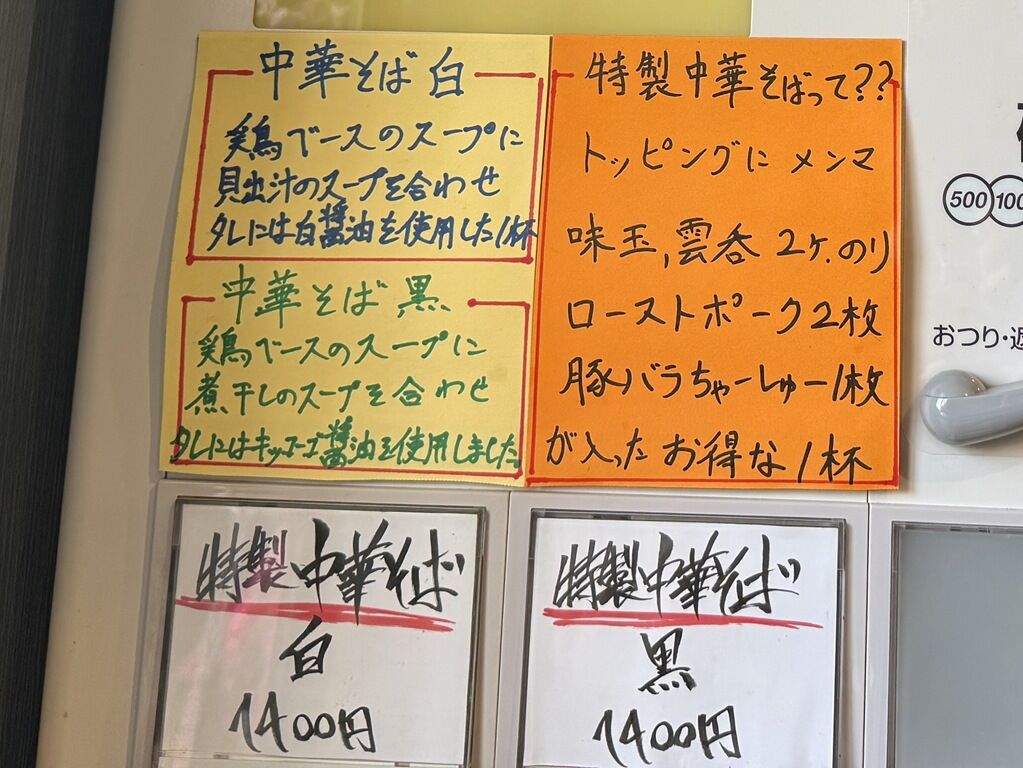 中華そば 白
鶏ベースのスープに
貝出汁のスープを合わせ
タレには白醤油を使用した1杯
中華そば 黒
鶏ベースのスープに
煮干しのスープを合わせ
タレにはキッコーゴ醤油を使用しました
特製中華そばって??
トッピングに メンマ
味玉,雲呑 2ヶ.のり
ローストポーク2枚
豚バラちゃーしゅー1枚
が入った お得な1杯
500
100
おつり・返
特製中華そば
白
1400円
特製中華そば
黒
1400円